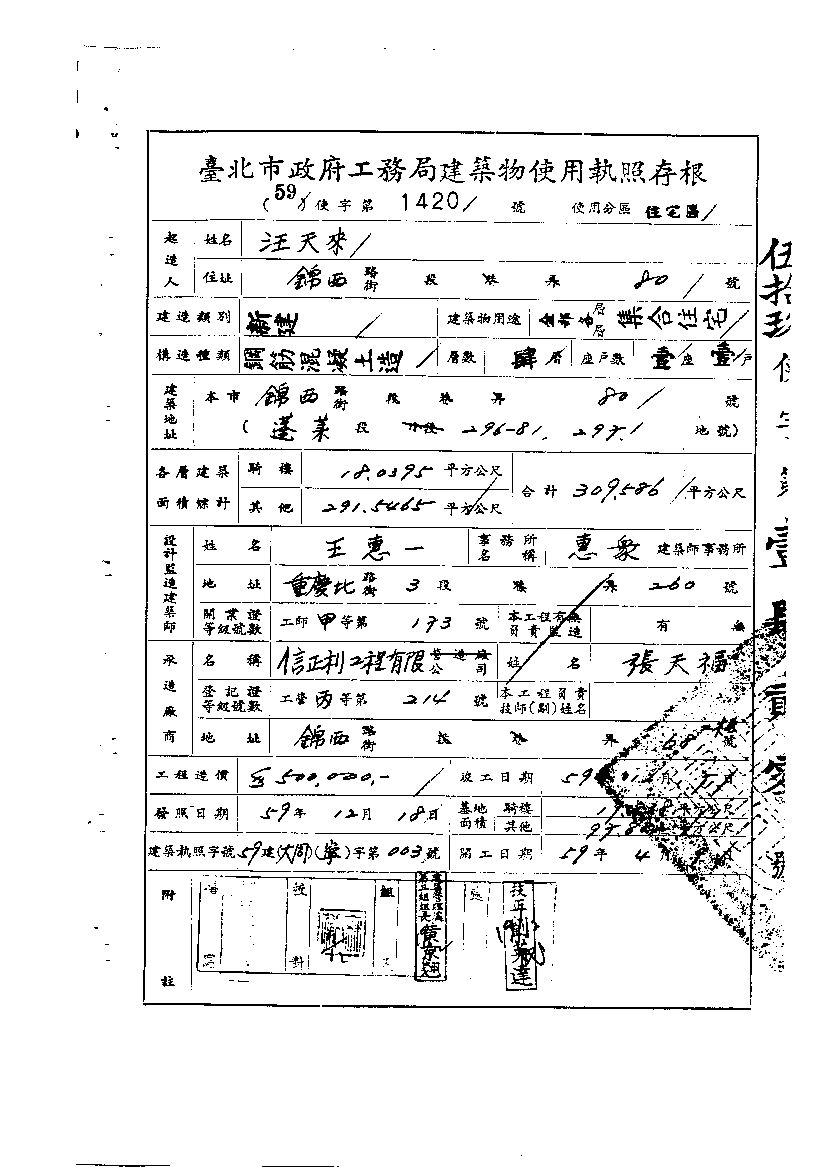 臺北市政府工務局建築物使用執照存根
(59)使字第 1420 號 使用分區 住宅區
起造人 姓名 汪天來
住址 錦西 路街 段 巷 弄 80 號
建造類別 新建 建築物用途 各層 集合住宅
構造種類 鋼筋混凝土造 層數 肆層 座戶數 壹座 壹戶
建築地址 本市 錦西 路街 段 巷 弄 80 號
(蓬萊 段 小段 296-81, 297-1 地號)
各層建築面積綜計 騎樓 18.0395 平方公尺 合計 309.586 平方公尺
其他 291.5465 平方公尺
設計監造建築師 姓名 王惠一 事務所名稱 惠眾 建築師事務所
地址 重慶北 路街 3 段 巷 弄 260 號
開業證等級號數 工師 甲 等第 173 號 本工程有無負責監造 有 無
承造廠商 名稱 信正利工程有限 營造廠公司 姓名 張天福
登記證等級號數 工營 丙 等第 214 號 本工程負責技師(副)姓名
地址 錦西 路街 段 巷 弄 68 號
工程造價 500,000.- 竣工日期 59年
發照日期 59年 12月 18日 基地面積 騎樓 平方公尺
其他 平方公尺
建築執照字號 59建(大同)(寧)字第 003 號 開工日期 59年 4月
附註
伍拾玖使字第壹肆貳零號